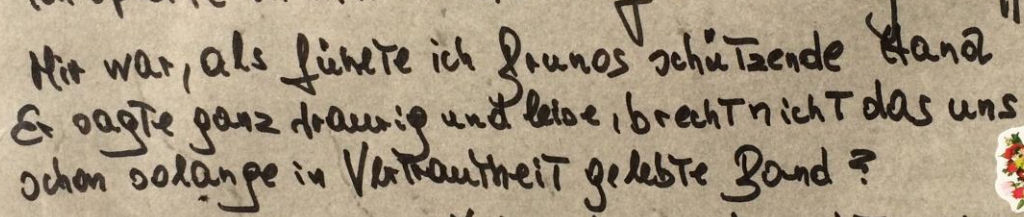 Mir war, als fühlte ich Brunos schützende Hand
Er sagte ganz traurig und leise, brecht nicht das uns
schon solange in Vertrautheit gelebte Band?